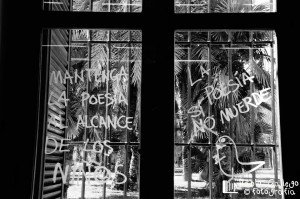 MANTENGA
LA POESÍA
AL ALCANCE
DE LOS
NIÑOS
POESÍA
NO MUERDE
fotografía